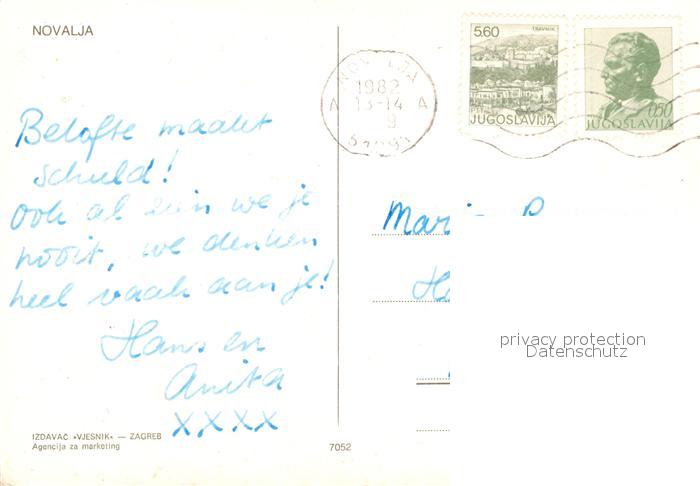 NOVALJA
1982
13-14
A A
9
5.60
TRAVNIK
JUGOSLAVIJA
0.50
JUGOSLAVIJA
Belofte maakt
schuld!
ook al zien we je
nooit, we denken
heel vaak aan je!
Hans en
Anita
XXXX
privacy protection
Datenschutz
IZDAVAČ «VJESNIK» — ZAGREB
Agencija za marketing
7052